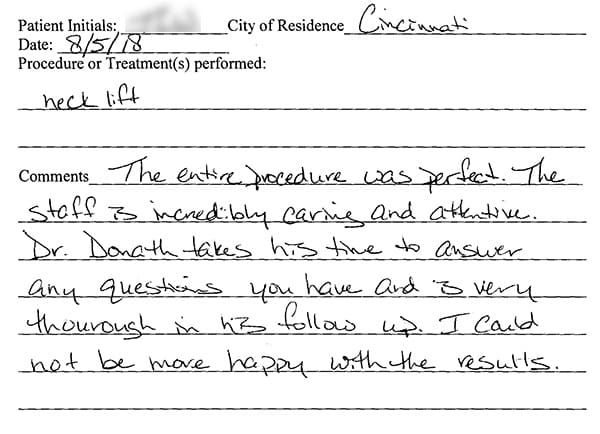 Patient Initials: City of Residence Cincinnati
Date: 8/5/18
Procedure or Treatment(s) performed:
neck lift
Comments The entire procedure was perfect. The
staff is incredibly caring and attentive.
Dr. Donath takes his time to answer
any questions you have and is very
thourough in his follow up. I could
not be more happy with the results.